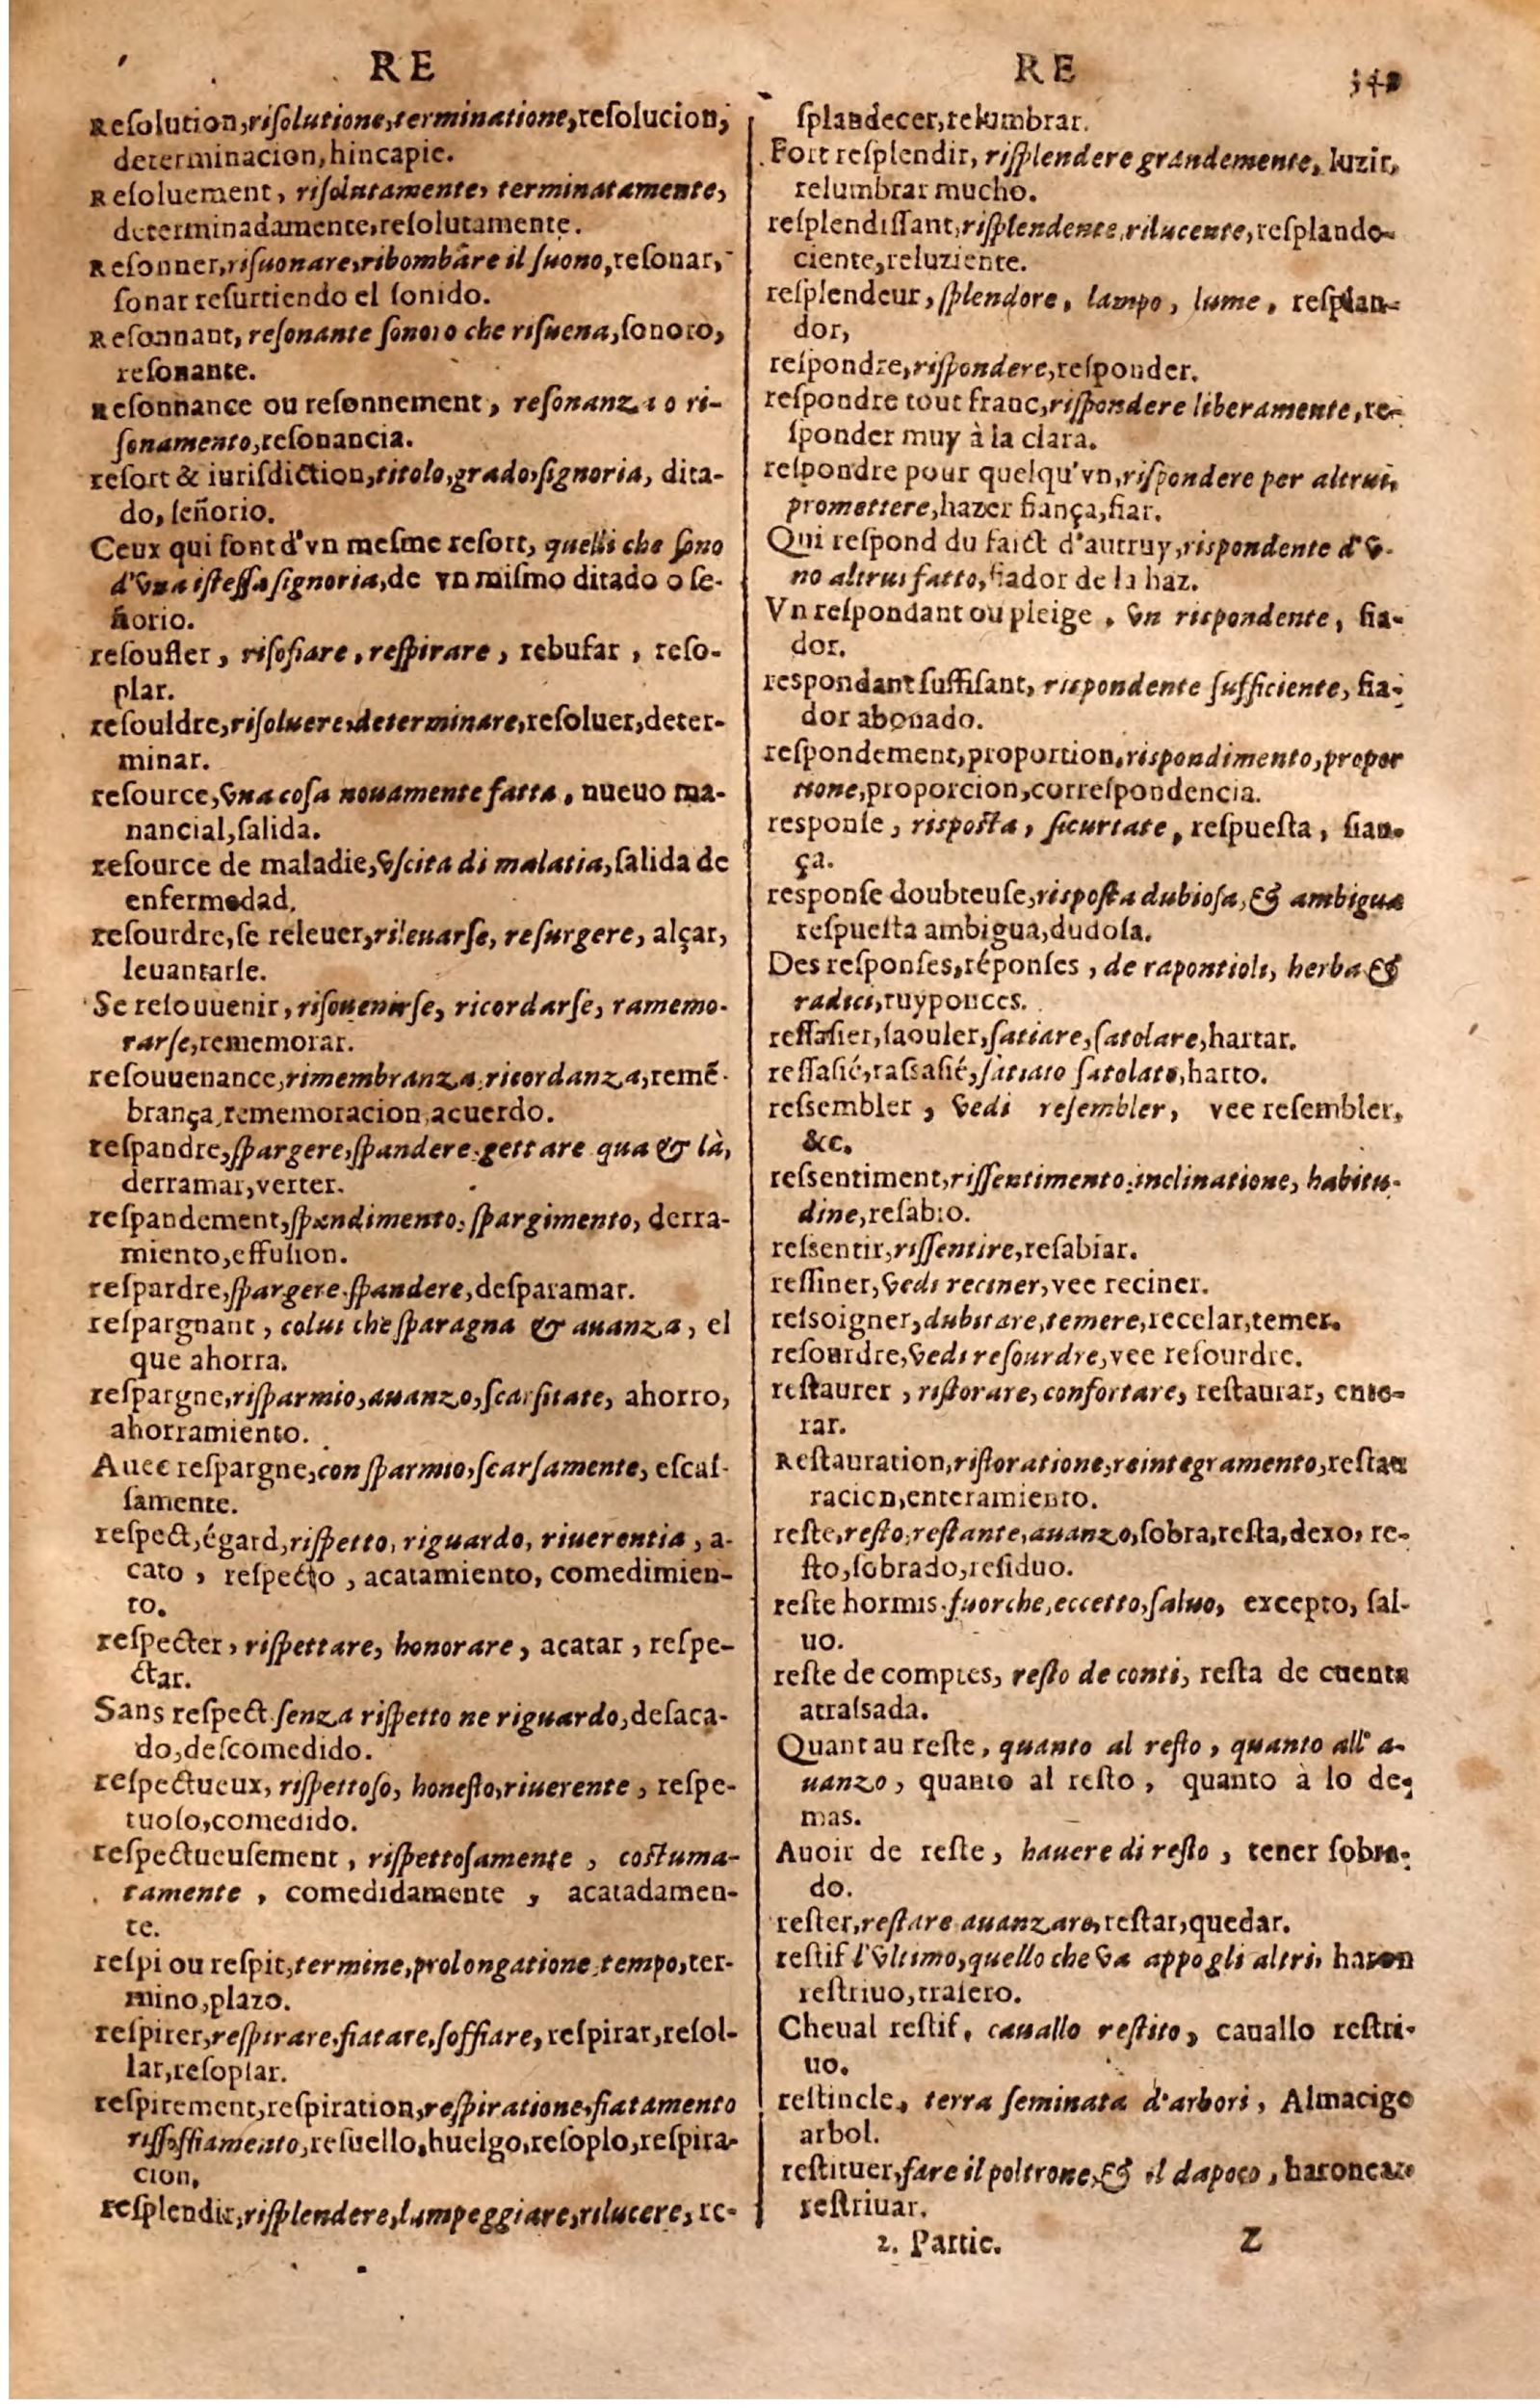 RE
Reſolution, riſolutione, terminatione, reſolucion,
determinacion, hincapie.
Reſoluement, riſolutamente, terminatamente,
determinadamente, reſolutamente.
Reſonner, riſuonare, ribombare il ſuono, reſonar,
ſonar reſurtiendo el ſonido.
Reſonnant, reſonante ſonoro che riſuena, ſonoro,
reſonante.
Reſonnance ou reſonnement, reſonanza o ri-
ſonamento, reſonancia.
reſort & iurisdiction, titolo, grado, ſignoria, dita-
do, ſeñorio.
Ceux qui ſont d'vn meſme reſort, quelli che ſono
d'vna iſteſſa ſignoria, de vn miſmo ditado o ſe-
ñorio.
reſoufler, riſofiare, reſpirare, rebufar, reſo-
plar.
reſouldre, riſoluere, determinare, reſoluer, deter-
minar.
reſource, vna coſa nouamente fatta, nueuo ma-
nancial, ſalida.
reſource de maladie, vſcita di malatia, ſalida de
enfermedad.
reſourdre, ſe releuer, rileuarſe, reſurgere, alçar,
leuantarſe.
Se reſouuenir, riſouenirſe, ricordarſe, ramemo-
rarſe, rememorar.
reſouuenance, rimembranza, ricordanza, remē-
brança, rememoracion, acuerdo.
reſpandre, ſpargere, ſpandere, gettare qua & là,
derramar, verter.
reſpandement, ſpandimento, ſpargimento, derra-
miento, effuſion.
reſpardre, ſpargere, ſpandere, deſparamar.
reſpargnant, colui che ſparagna & auanza, el
que ahorra.
reſpargne, riſparmio, auanzo, ſcarſitate, ahorro,
ahorramiento.
Auec reſpargne, con ſparmio, ſcarſamente, eſcaſ-
ſamente.
reſpect, égard, riſpetto, riguardo, riuerentia, a-
cato, reſpecto, acatamiento, comedimien-
to.
reſpecter, riſpettare, honorare, acatar, reſpe-
ctar.
Sans reſpect ſenza riſpetto ne riguardo, deſaca-
do, deſcomedido.
reſpectueux, riſpettoſo, honeſto, riuerente, reſpe-
tuoſo, comedido.
reſpectueuſement, riſpettoſamente, coſtuma-
tamente, comedidamente, acatadamen-
te.
reſpi ou reſpit, termine, prolongatione, tempo, ter-
mino, plazo.
reſpirer, reſpirare, fiatare, ſoffiare, reſpirar, reſol-
lar, reſoplar.
reſpirement, reſpiration, reſpiratione, fiatamento
riſſoffiamento, reſuello, huelgo, reſoplo, reſpira-
cion.
reſplendir, riſplendere, lampeggiare, rilucere, re-
RE
ſplandecer, relumbrar.
Fort reſplendir, riſplendere grandemente, luzir,
relumbrar mucho.
reſplendiſſant, riſplendente, rilucente, reſplande-
ciente, reluziente.
reſplendeur, ſplendore, lampo, lume, reſplan-
dor,
reſpondre, riſpondere, reſponder.
reſpondre tout franc, riſpondere liberamente, re-
ſponder muy à la clara.
reſpondre pour quelqu'vn, riſpondere per altrui,
promettere, hazer fiança, fiar.
Qui reſpond du faict d'autruy, rispondente d'v-
no altrui fatto, fiador de la haz.
Vn reſpondant ou pleige, vn rispondente, fia-
dor.
reſpondant ſuffiſant, rispondente ſufficiente, fia-
dor abonado.
reſpondement, proportion, rispondimento, propor
tione, proporcion, correſpondencia.
reſponſe, risposta, ſicurtate, reſpueſta, fian-
ça.
reſponſe doubteuſe, risposta dubioſa, & ambigua
reſpueſta ambigua, dudoſa.
Des reſponſes, réponſes, de rapontioli, herba &
radici, ruyponces.
reſſaſier, ſaouler, ſatiare, ſatolare, hartar.
reſſaſié, raſsaſié, ſatiato ſatolato, harto.
reſsembler, vedi reſembler, vee reſembler,
&c.
reſsentiment, riſſentimento, inclinatione, habitu-
dine, reſabio.
reſsentir, riſſentire, reſabiar.
reſſiner, vedi reciner, vee reciner.
reſsoigner, dubitare, temere, recelar, temer.
reſourdre, vedi reſourdre, vee reſourdre.
reſtaurer, riſtorare, confortare, reſtaurar, ente-
rar.
Reſtauration, riſtoratione, reintegramento, reſtau
racion, enteramiento.
reſte, reſto, reſtante, auanzo, ſobra, reſta, dexo, re-
ſto, ſobrado, reſiduo.
reſte hormis, fuorche, eccetto, ſaluo, excepto, ſal-
uo.
reſte de comptes, reſto de conti, reſta de cuenta
atraſsada.
Quant au reſte, quanto al reſto, quanto all' a-
uanzo, quanto al reſto, quanto à lo de-
mas.
Auoir de reſte, hauere di reſto, tener ſobra-
do.
reſter, reſtare auanzare, reſtar, quedar.
reſtif l'vltimo, quello che va appo gli altri, haron
reſtriuo, traſero.
Cheual reſtif, cauallo reſtito, cauallo reſtri-
uo.
reſtincle, terra ſeminata d'arbori, Almacigo
arbol.
reſtituer, fare il poltrone, & il dapoco, haronear
reſtriuar.
2. Partie. Z